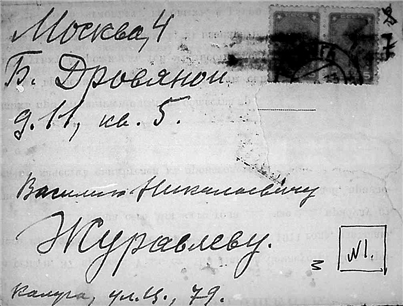 Москва, 4
Б. Дровяной
д. 11, кв. 5.
Василию Николаевичу
Журавлеву.
N1.
Калуга, ул. Ц., 79.